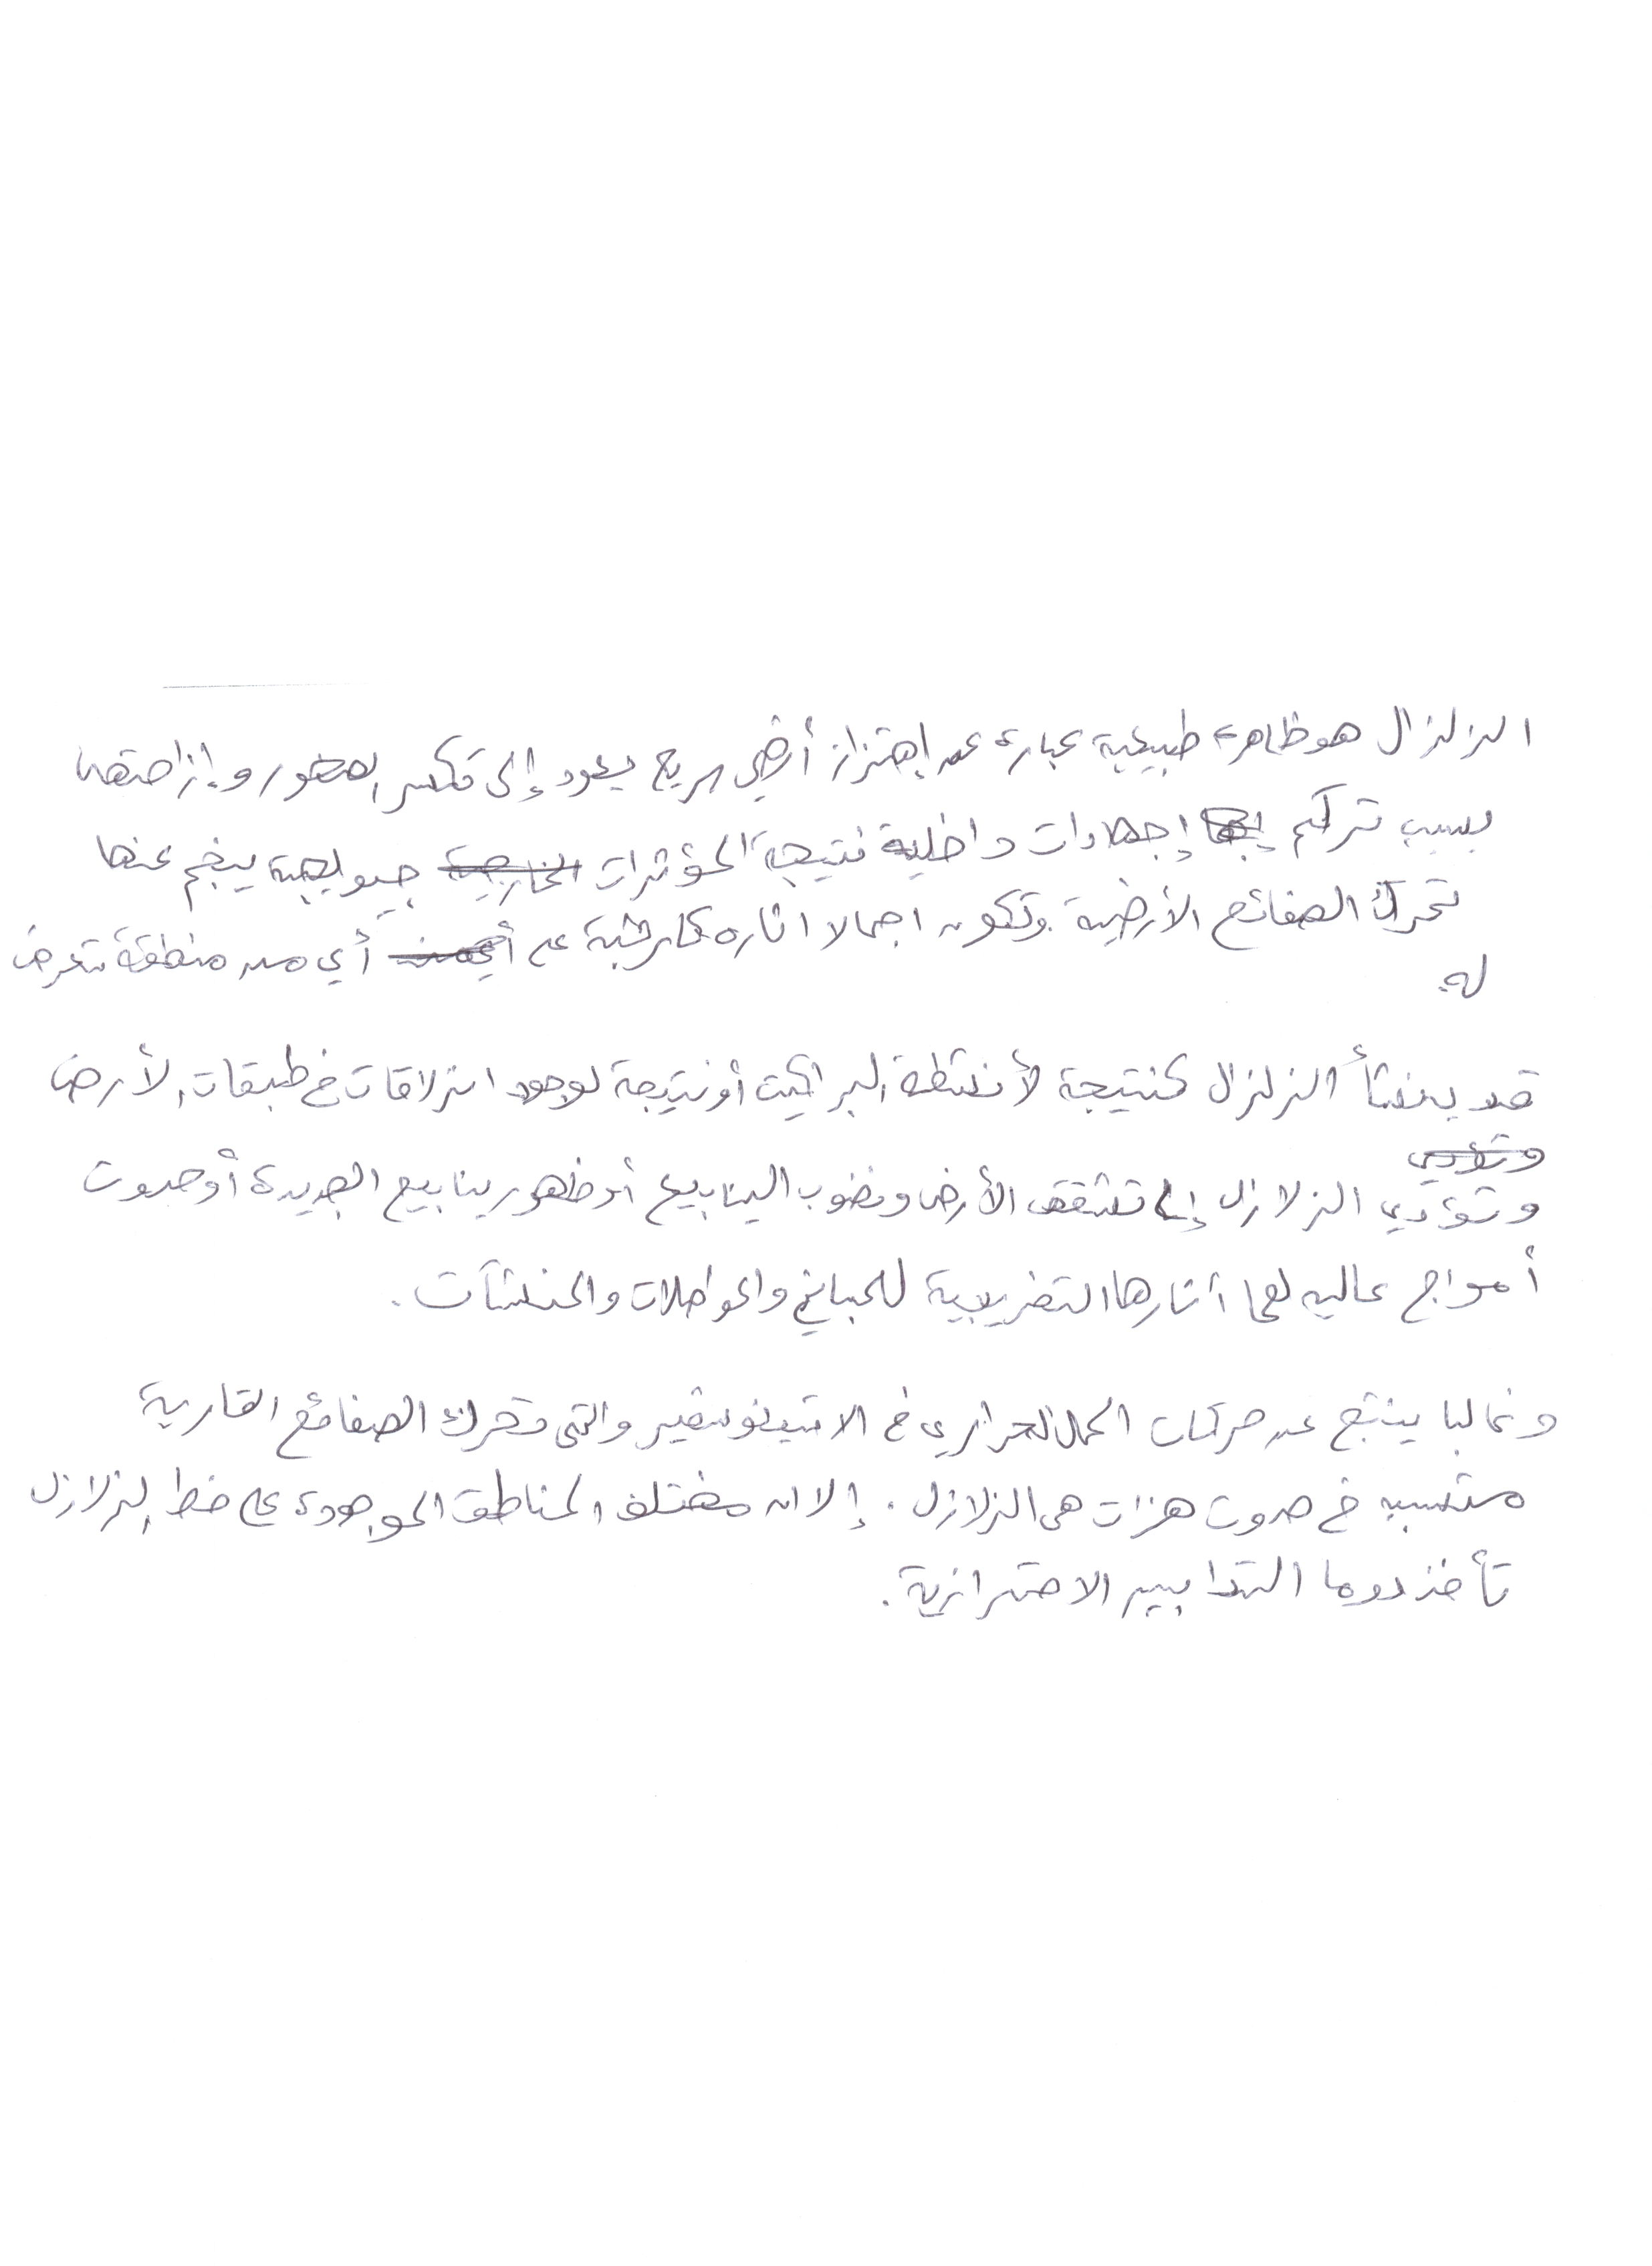 الزلزال هو ظاهرة طبيعية عبارة عن إهتزاز أرضي سريع يعود إلى تكسر الصخور وإزاحتها
بسبب تراكم إجهادات داخلية نتيجة المؤثرات جيولجية ينجم عنها
تحرك الصفائح الأرضية. وتكون اجمالا اثاره كارثية على أي من منطقة تتعرض
له.
قد ينشأ الزلزال كنتيجة لأنشطة البراكين أو نتيجة لوجود انزلاقات في طبقات الأرض
وتؤدي
وتؤدي الزلازل إلى تشقق الأرض ونضوب الينابيع أو ظهور ينابيع الجديدة أو حدوث
أمواج عاليه لها أثارها التخريبية للمباني والمواصلات والمنشآت.
وغالبا ينتج عن حركات الحمل الحراري في الاثينوسفير والتي تحرك الصفائح القارية
متسببه في حدوث هزات هي الزلازل. إلا ان مختلف المناطق الموجودة على خط الزلازل
تأخذ دوما التدابير الاحترازية.